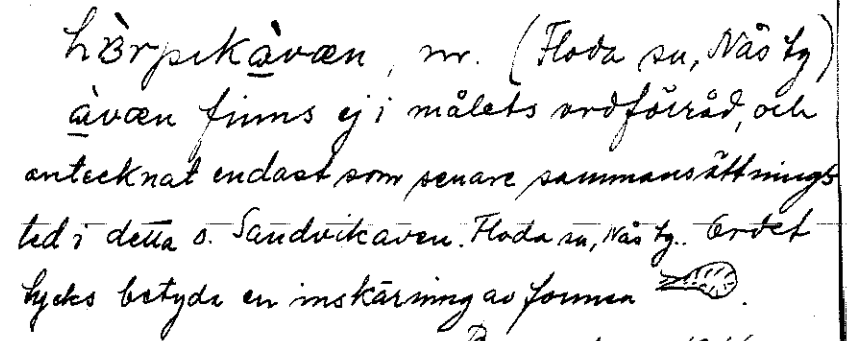 hɵ̀rpɩkàvæn, nr. (Floda sn, Nås tg)
àvæn finns ej i målets ordförråd, och
antecknat endast som senare sammansättnings
led i detta o. Sandvikaven. Floda sn, Nås tg. Ordet
tycks betyda en inskärning av formen